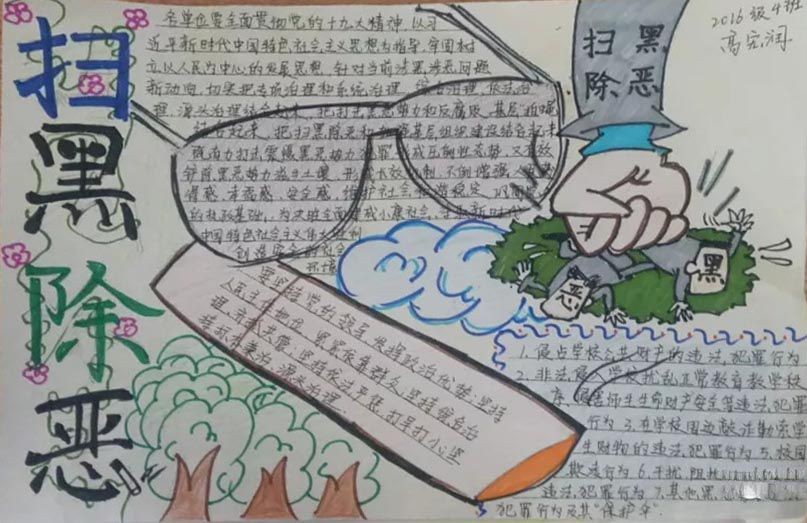 扫
黑
除
恶
2016级4班
高宏润
扫黑
除恶
各单位要全面贯彻党的十九大精神,以习
近平新时代中国特色社会主义思想为指导,牢固树
立以人民为中心的发展思想,针对当前涉黑涉恶问题
新动向,切实把专项治理和系统治理、综合治理、依法治
理、源头治理结合起来,把打击黑恶势力和反腐败、基层"拍蝇"
结合起来,把扫黑除恶和加强基层组织建设结合起来
既有力打击震慑黑恶势力犯罪,形成压倒性态势,又有效
铲除黑恶势力滋生土壤,形成长效机制,不断增强人民获
得感、幸福感、安全感,维护社会和谐稳定,
的执政基础,为决胜全面建成小康社会、夺取新时代
中国特色社会主义伟大胜利
创造安全的社会
环境
要坚持党的领导、发挥政治优势;坚持
人民主体地位、紧紧依靠群众;坚持综合治
理、齐抓共管;坚持依法严惩、打早打小;坚
持标本兼治、源头治理。
恶
黑
1.侵占学校公共财产的违法,犯罪行为
2.非法侵入学校扰乱正常教育教学秩
序,侵害师生生命财产安全等违法,犯罪
行为 3.在学校周边敲诈勒索学
生财物的违法,犯罪行为 5.校园
欺凌行为 6.干扰,阻扰
违法,犯罪行为 7.其他黑
犯罪行为及其"保护伞"